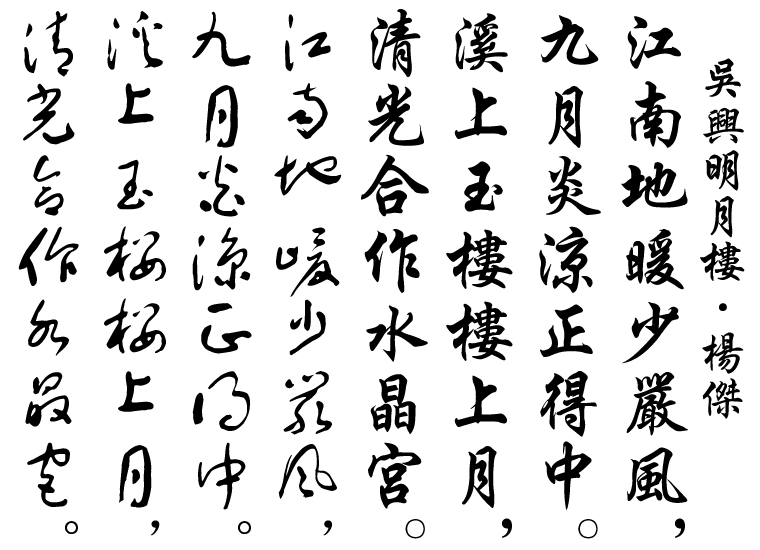 吳興明月樓·楊傑
江南地暖少嚴風，
九月炎涼正得中。
溪上玉樓樓上月，
清光合作水晶宮。
江南地暖少嚴風，
九月炎涼正得中。
溪上玉樓樓上月，
清光合作水晶宮。